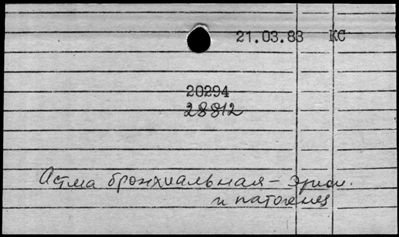 21.03.83 КС
20294
28812
Астма бронхиальная – этиол.
и патогенез